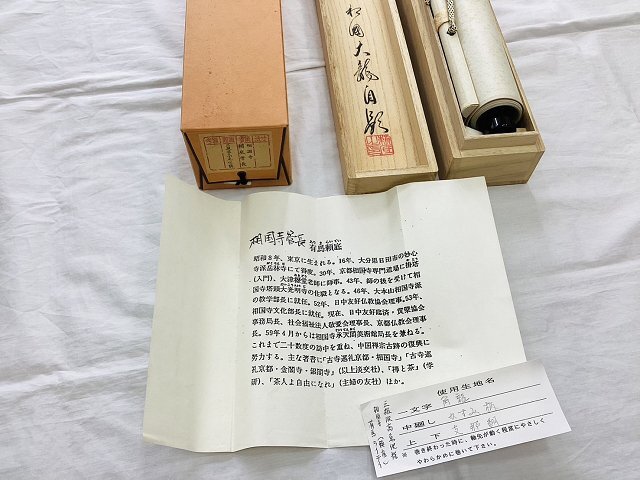 相国大龍自題
相国寺管長
有馬頼底
昭和8年、東京に生まれる。16年、大分県日田市の妙心
寺派岳林寺にて得度。30年、京都相国寺専門道場に掛塔
(入門)、大津櫪堂老師に師事。43年、師の後を受けて相
国寺塔頭大光明寺の住職となる。46年、大本山相国寺派
の教学部長に就任。52年、日中友好仏教協会理事。53年、
相国寺文化部長に就任。現在、日中友好臨済・黄檗協会
事務局長、社会福祉法人敬愛会理事長、京都仏教会理事
長。59年4月からは相国寺承天閣美術館局長を兼ねる。
これまで二十数度の訪中を重ね、中国禅宗古跡の復興に
努力する。主な著書に「古寺巡礼京都・相国寺」「古寺巡
礼京都・金閣寺・銀閣寺」(以上淡交社)、「禅と茶」(学
研)、「茶人よ自由になれ」(主婦の友社)ほか。
使用生地名
一文字
中廻し
上下 支那
巻き終わった時に、軸先が動く程度にやさしく
やわらかめに巻いて下さい。